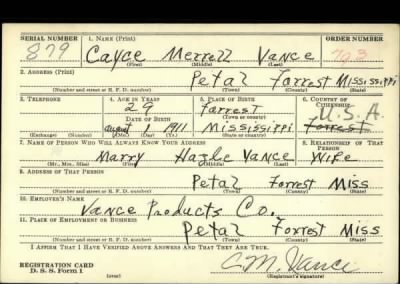 SERIAL NUMBER 1. NAME (Print) ORDER NUMBER
879 Cayce Merrell Vance
(First) (Middle) (Last)
2. ADDRESS (Print)
Petal Forrest Mississippi
(Number and street or R. F. D. number) (Town) (County) (State)
3. TELEPHONE 4. AGE IN YEARS 5. PLACE OF BIRTH 6. COUNTRY OF CITIZENSHIP
29 Forrest U.S.A
DATE OF BIRTH (Town or county) Forrest
August 1911 Mississippi
(Exchange) (Number) (Mo.) (Day) (Yr.) (State or country)
7. NAME OF PERSON WHO WILL ALWAYS KNOW YOUR ADDRESS 8. RELATIONSHIP OF THAT PERSON
Marry Hazle Vance Wife
(Mr., Mrs., Miss) (First) (Middle) (Last)
9. ADDRESS OF THAT PERSON
Petal Forrest Miss
(Number and street or R. F. D. number) (Town) (County) (State)
10. EMPLOYER'S NAME
Vance Products Co.
11. PLACE OF EMPLOYMENT OR BUSINESS
Petal Forrest Miss
(Number and street or R. F. D. number) (Town) (County) (State)
I AFFIRM THAT I HAVE VERIFIED ABOVE ANSWERS AND THAT THEY ARE TRUE.
REGISTRATION CARD
D. S. S. Form 1 (over) C M. Vance
(Registrant's signature)